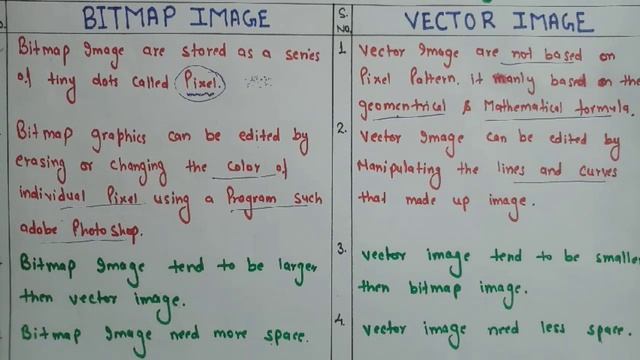 BITMAP IMAGE
Bitmap Image are stored as a series
of tiny dots called Pixel.
Bitmap graphics can be edited by
erasing or changing the color of
individual Pixel using a Program such
adobe PhotoShop.
Bitmap Image tend to be larger
then vector image.
Bitmap Image need more space.
S.
NO.
VECTOR IMAGE
1 Vector Image are not based on
Pixel Pattern. it manly based on the
geomentrical & Mathematical formula.
2. Vector Image can be edited by
Manipulating the lines and curves
that made up image.
3. vector image tend to be smaller
then bitmap image.
4. vector image need less space.